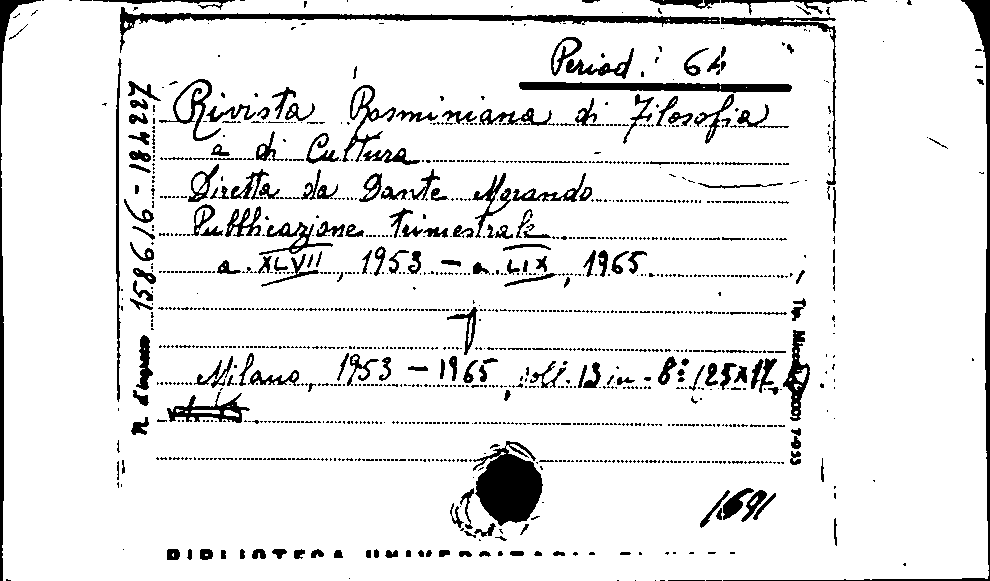 Period. 64
Rivista Rosminiana di Filosofia
e di Cultura
Diretta da Dante Morando
Pubblicazione trimestrale
a. XLVII, 1953 - a. LIX, 1965.
Milano, 1953 - 1965, voll. 13 in - 8° (25x17,
1691
N. d'ingresso 158616 - 184227
BIBLIOTECA UNIVERSITARIA DI